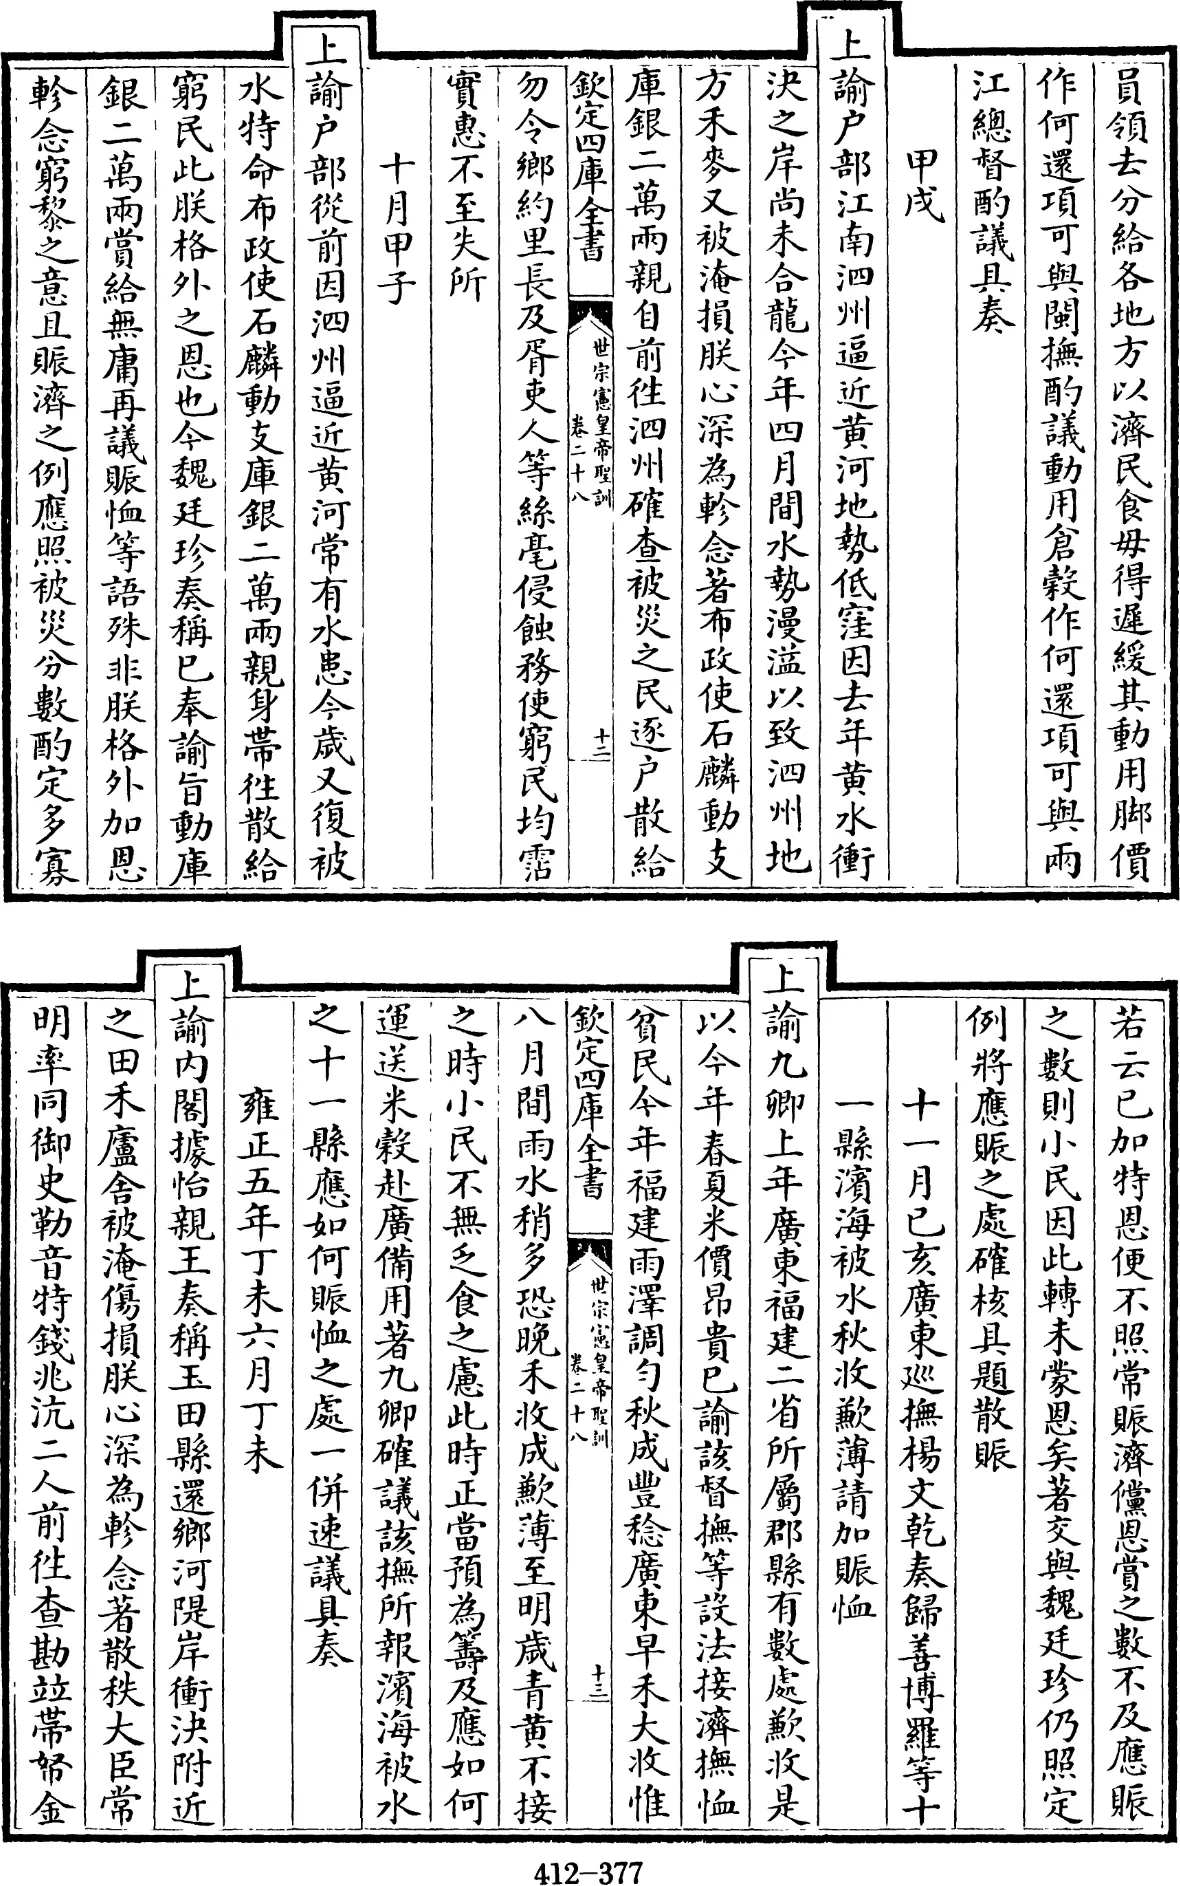 員領去分給各地方以濟民食毋得遲緩其動用脚價
作何還項可與閩撫酌議動用倉穀作何還項可與兩
江總督酌議具奏
甲戌
上諭户部江南泗州逼近黄河地勢低窪因去年黄水衝
決之岸尚未合龍今年四月間水勢漫溢以致泗州地
方禾麥又被淹損朕心深為軫念著布政使石麟動支
庫銀二萬兩親自前徃泗州確查被災之民逐户散給
欽定四庫全書
世宗憲皇帝聖訓
卷二十八
十二
勿令鄉約里長及胥吏人等絲毫侵蝕務使窮民均霑
實惠不至失所
十月甲子
上諭户部從前因泗州逼近黄河常有水患今歲又復被
水特命布政使石麟動支庫銀二萬兩親身帶徃散給
窮民此朕格外之恩也今魏廷珍奏稱已奉諭旨動庫
銀二萬兩賞給無庸再議賑恤等語殊非朕格外加恩
軫念窮黎之意且賑濟之例應照被災分數酌定多寡
若云已加特恩便不照常賑濟儻恩賞之數不及應賑
之數則小民因此轉未蒙恩矣著交與魏廷珍仍照定
例將應賑之處確核具題散賑
十一月已亥廣東巡撫楊文乾奏歸善博羅等十
一縣濱海被水秋收歉薄請加賑恤
上諭九卿上年廣東福建二省所屬郡縣有數處歉收是
以今年春夏米價昂貴已諭該督撫等設法接濟撫恤
貧民今年福建雨澤調勻秋成豐稔廣東早禾大收惟
欽定四庫全書
世宗憲皇帝聖訓
卷二十八
十三
八月間雨水稍多恐晚禾收成歉薄至明歲青黄不接
之時小民不無乏食之慮此時正當預為籌及應如何
運送米穀赴廣備用著九卿確議該撫所報濱海被水
之十一縣應如何賑恤之處一併速議具奏
雍正五年丁未六月丁未
上諭内閣據怡親王奏稱玉田縣還鄉河隄岸衝決附近
之田禾廬舍被淹傷損朕心深為軫念著散秩大臣常
明率同御史勒音特錢兆沆二人前徃查勘竝帶帑金
412-377